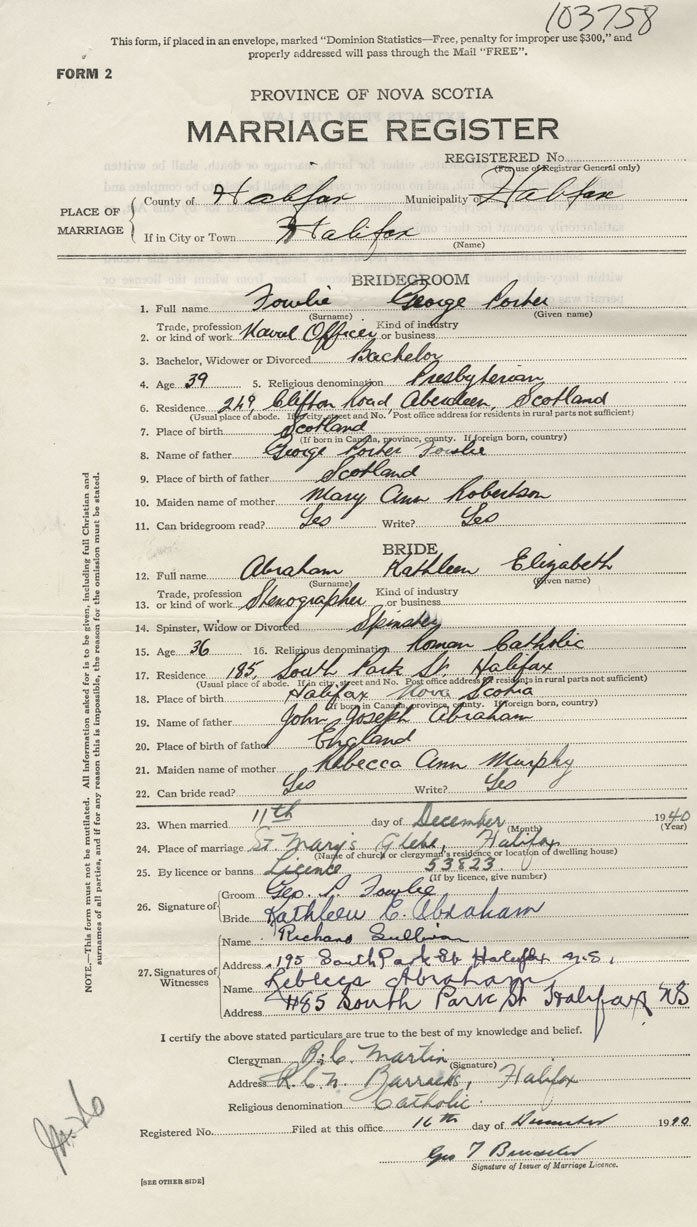 103758
This form, if placed in an envelope, marked "Dominion Statistics—Free, penalty for improper use $300," and
properly addressed will pass through the Mail "FREE".
FORM 2
PROVINCE OF NOVA SCOTIA
MARRIAGE REGISTER
REGISTERED No.
(For use of Registrar General only)
PLACE OF MARRIAGE
County of Halifax Municipality of Halifax
If in City or Town Halifax
(Name)
BRIDEGROOM
1. Full name Fowlie George Porter
(Surname) (Given name)
2. Trade, profession or kind of work Naval Officer Kind of industry or business
3. Bachelor, Widower or Divorced Bachelor
4. Age 39 5. Religious denomination Presbyterian
6. Residence 249, Clifton Road, Aberdeen, Scotland
(Usual place of abode. If in city, street and No. Post office address for residents in rural parts not sufficient)
7. Place of birth Scotland
(If born in Canada, province, county. If foreign born, country)
8. Name of father George Porter Fowlie
9. Place of birth of father Scotland
10. Maiden name of mother Mary Ann Robertson
11. Can bridegroom read? Yes Write? Yes
BRIDE
12. Full name Abraham Kathleen Elizabeth
(Surname) (Given name)
13. Trade, profession or kind of work Stenographer Kind of industry or business
14. Spinster, Widow or Divorced Spinster
15. Age 36 16. Religious denomination Roman Catholic
17. Residence 185, South Park St. Halifax
(Usual place of abode. If in city, street and No. Post office address for residents in rural parts not sufficient)
18. Place of birth Halifax Nova Scotia
(If born in Canada, province, county. If foreign born, country)
19. Name of father John Joseph Abraham
20. Place of birth of father England
21. Maiden name of mother Rebecca Ann Murphy
22. Can bride read? Yes Write? Yes
23. When married 11th day of December 1940
(Month) (Year)
24. Place of marriage St. Mary's Glebe, Halifax
(Name of church or clergyman's residence or location of dwelling house)
25. By licence or banns Licence 53823
(If by licence, give number)
26. Signature of
Groom Geo. P. Fowlie
Bride Kathleen E. Abraham
27. Signatures of Witnesses
Name Richard Sullivan
Address 195 South Park St Halifax N.S.
Name Rebecca Abraham
Address 185 South Park St Halifax NS
I certify the above stated particulars are true to the best of my knowledge and belief.
Clergyman B. C. Martin
(Signature)
Address R.C.N. Barracks, Halifax
Religious denomination Catholic
Registered No. Filed at this office 16th day of December 1940
Geo T
Signature of Issuer of Marriage Licence.
[SEE OTHER SIDE]
NOTE.—This form must not be mutilated. All information asked for is to be given, including full Christian and
surnames of all parties, and if for any reason this is impossible, the reason for the omission must be stated.